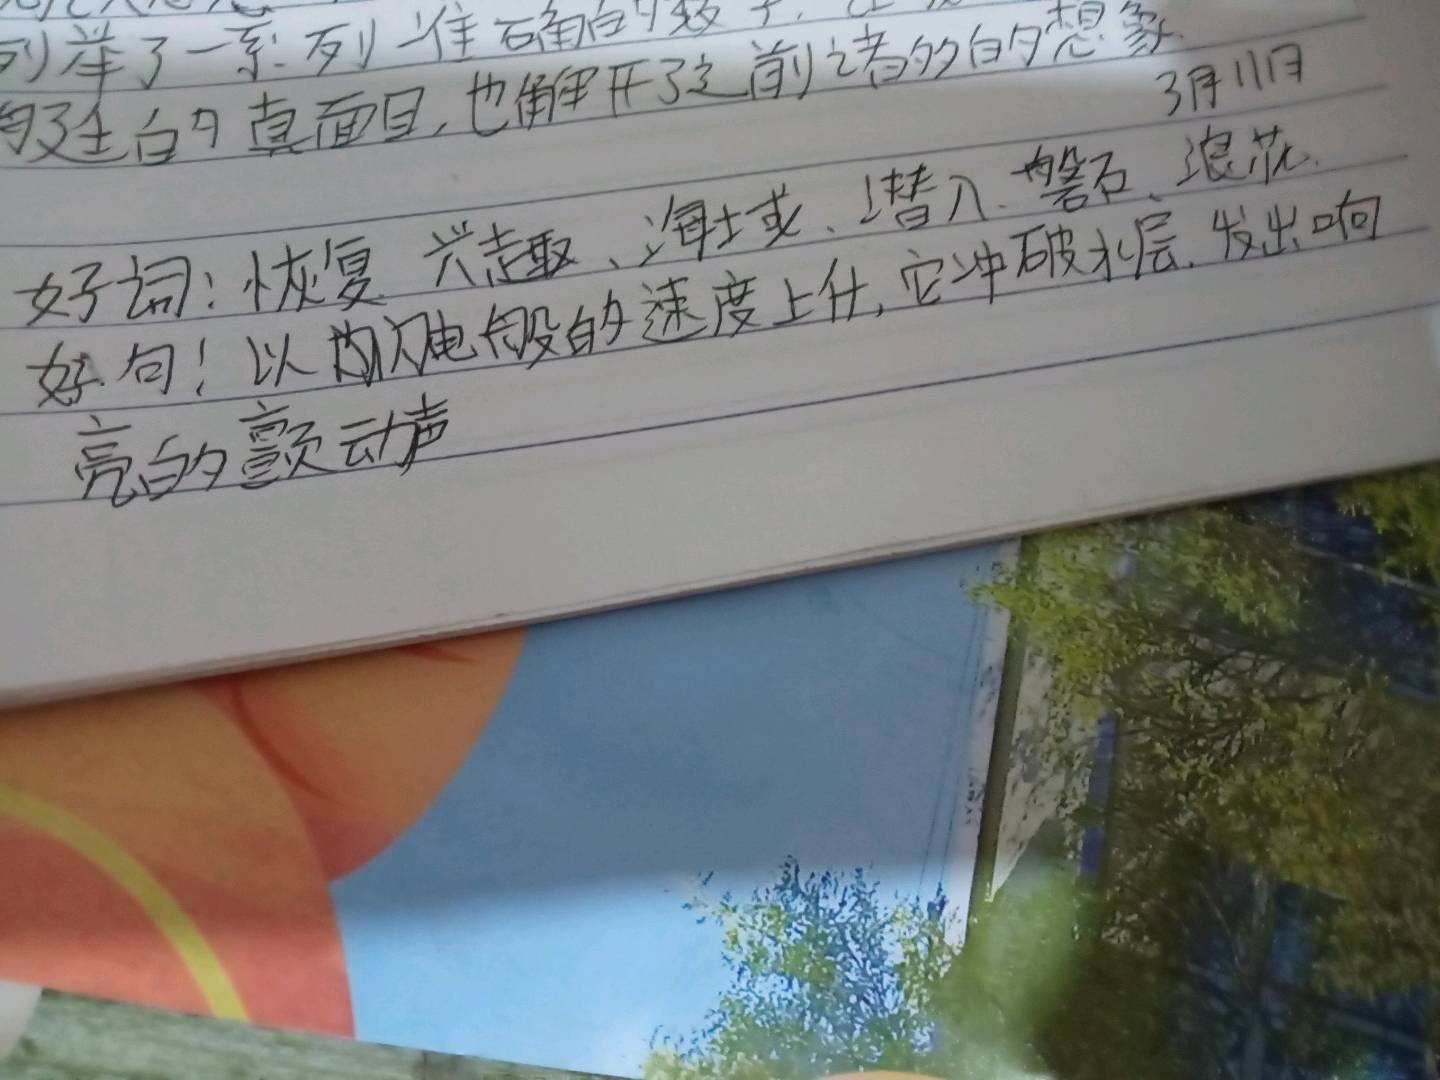 列举了一系列准确的数字,
的真面目,也解开了之前诸多的想象.
3月11日
好词:恢复 兴趣、海域、潜入、磐石、浪花.
好句!以闪电般的速度上升,它冲破水层.发出响
亮的颤动声